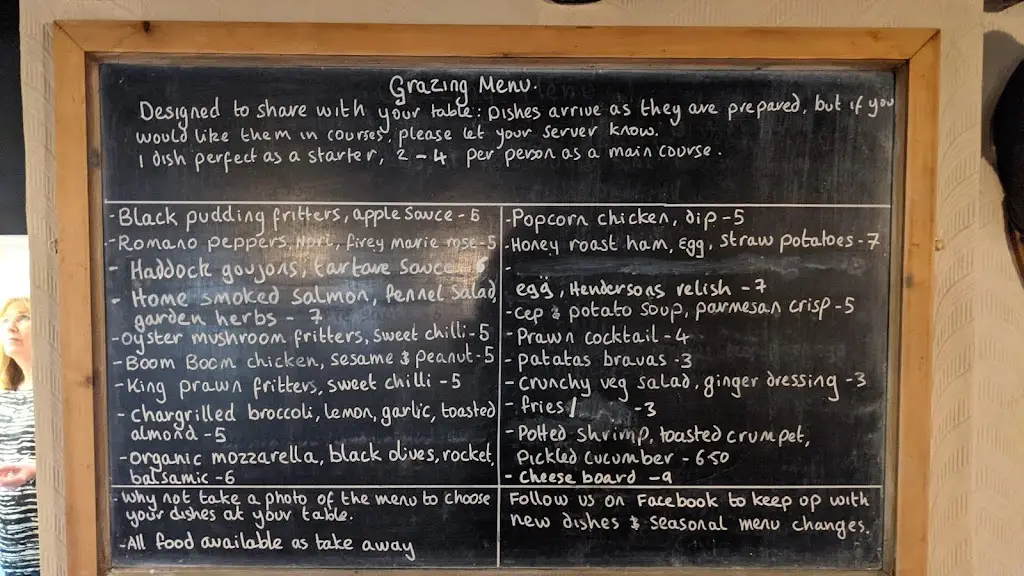 Grazing Menu.
Designed to share with your table: Dishes arrive as they are prepared, but if you
would like them in courses, please let your server know.
1 dish perfect as a starter, 2-4 per person as a main course.
- Black pudding fritters, apple sauce -5
- Romano peppers, nori, firey marie rose -5
- Haddock goujons, tartare sauce 6
- Home smoked salmon, fennel salad,
garden herbs - 7
- Oyster mushroom fritters, sweet chilli -5
- Boom Boom chicken, sesame & peanut -5
- King prawn fritters, sweet chilli -5
- Chargrilled broccoli, lemon, garlic, toasted
almond -5
- Organic mozzarella, black olives, rocket,
balsamic -6
- Popcorn chicken, dip -5
- Honey roast ham, egg, straw potatoes -7
-
egg, Hendersons relish -7
- cep & potato soup, parmesan crisp -5
- Prawn cocktail -4
- patatas bravas -3
- crunchy veg salad, ginger dressing -3
- fries / -3
- Potted shrimp, toasted crumpet,
Pickled cucumber -6.50
- Cheese board -9
- Why not take a photo of the menu to choose
your dishes at your table.
- All food available as take away
Follow us on Facebook to keep up with
new dishes & seasonal menu changes.